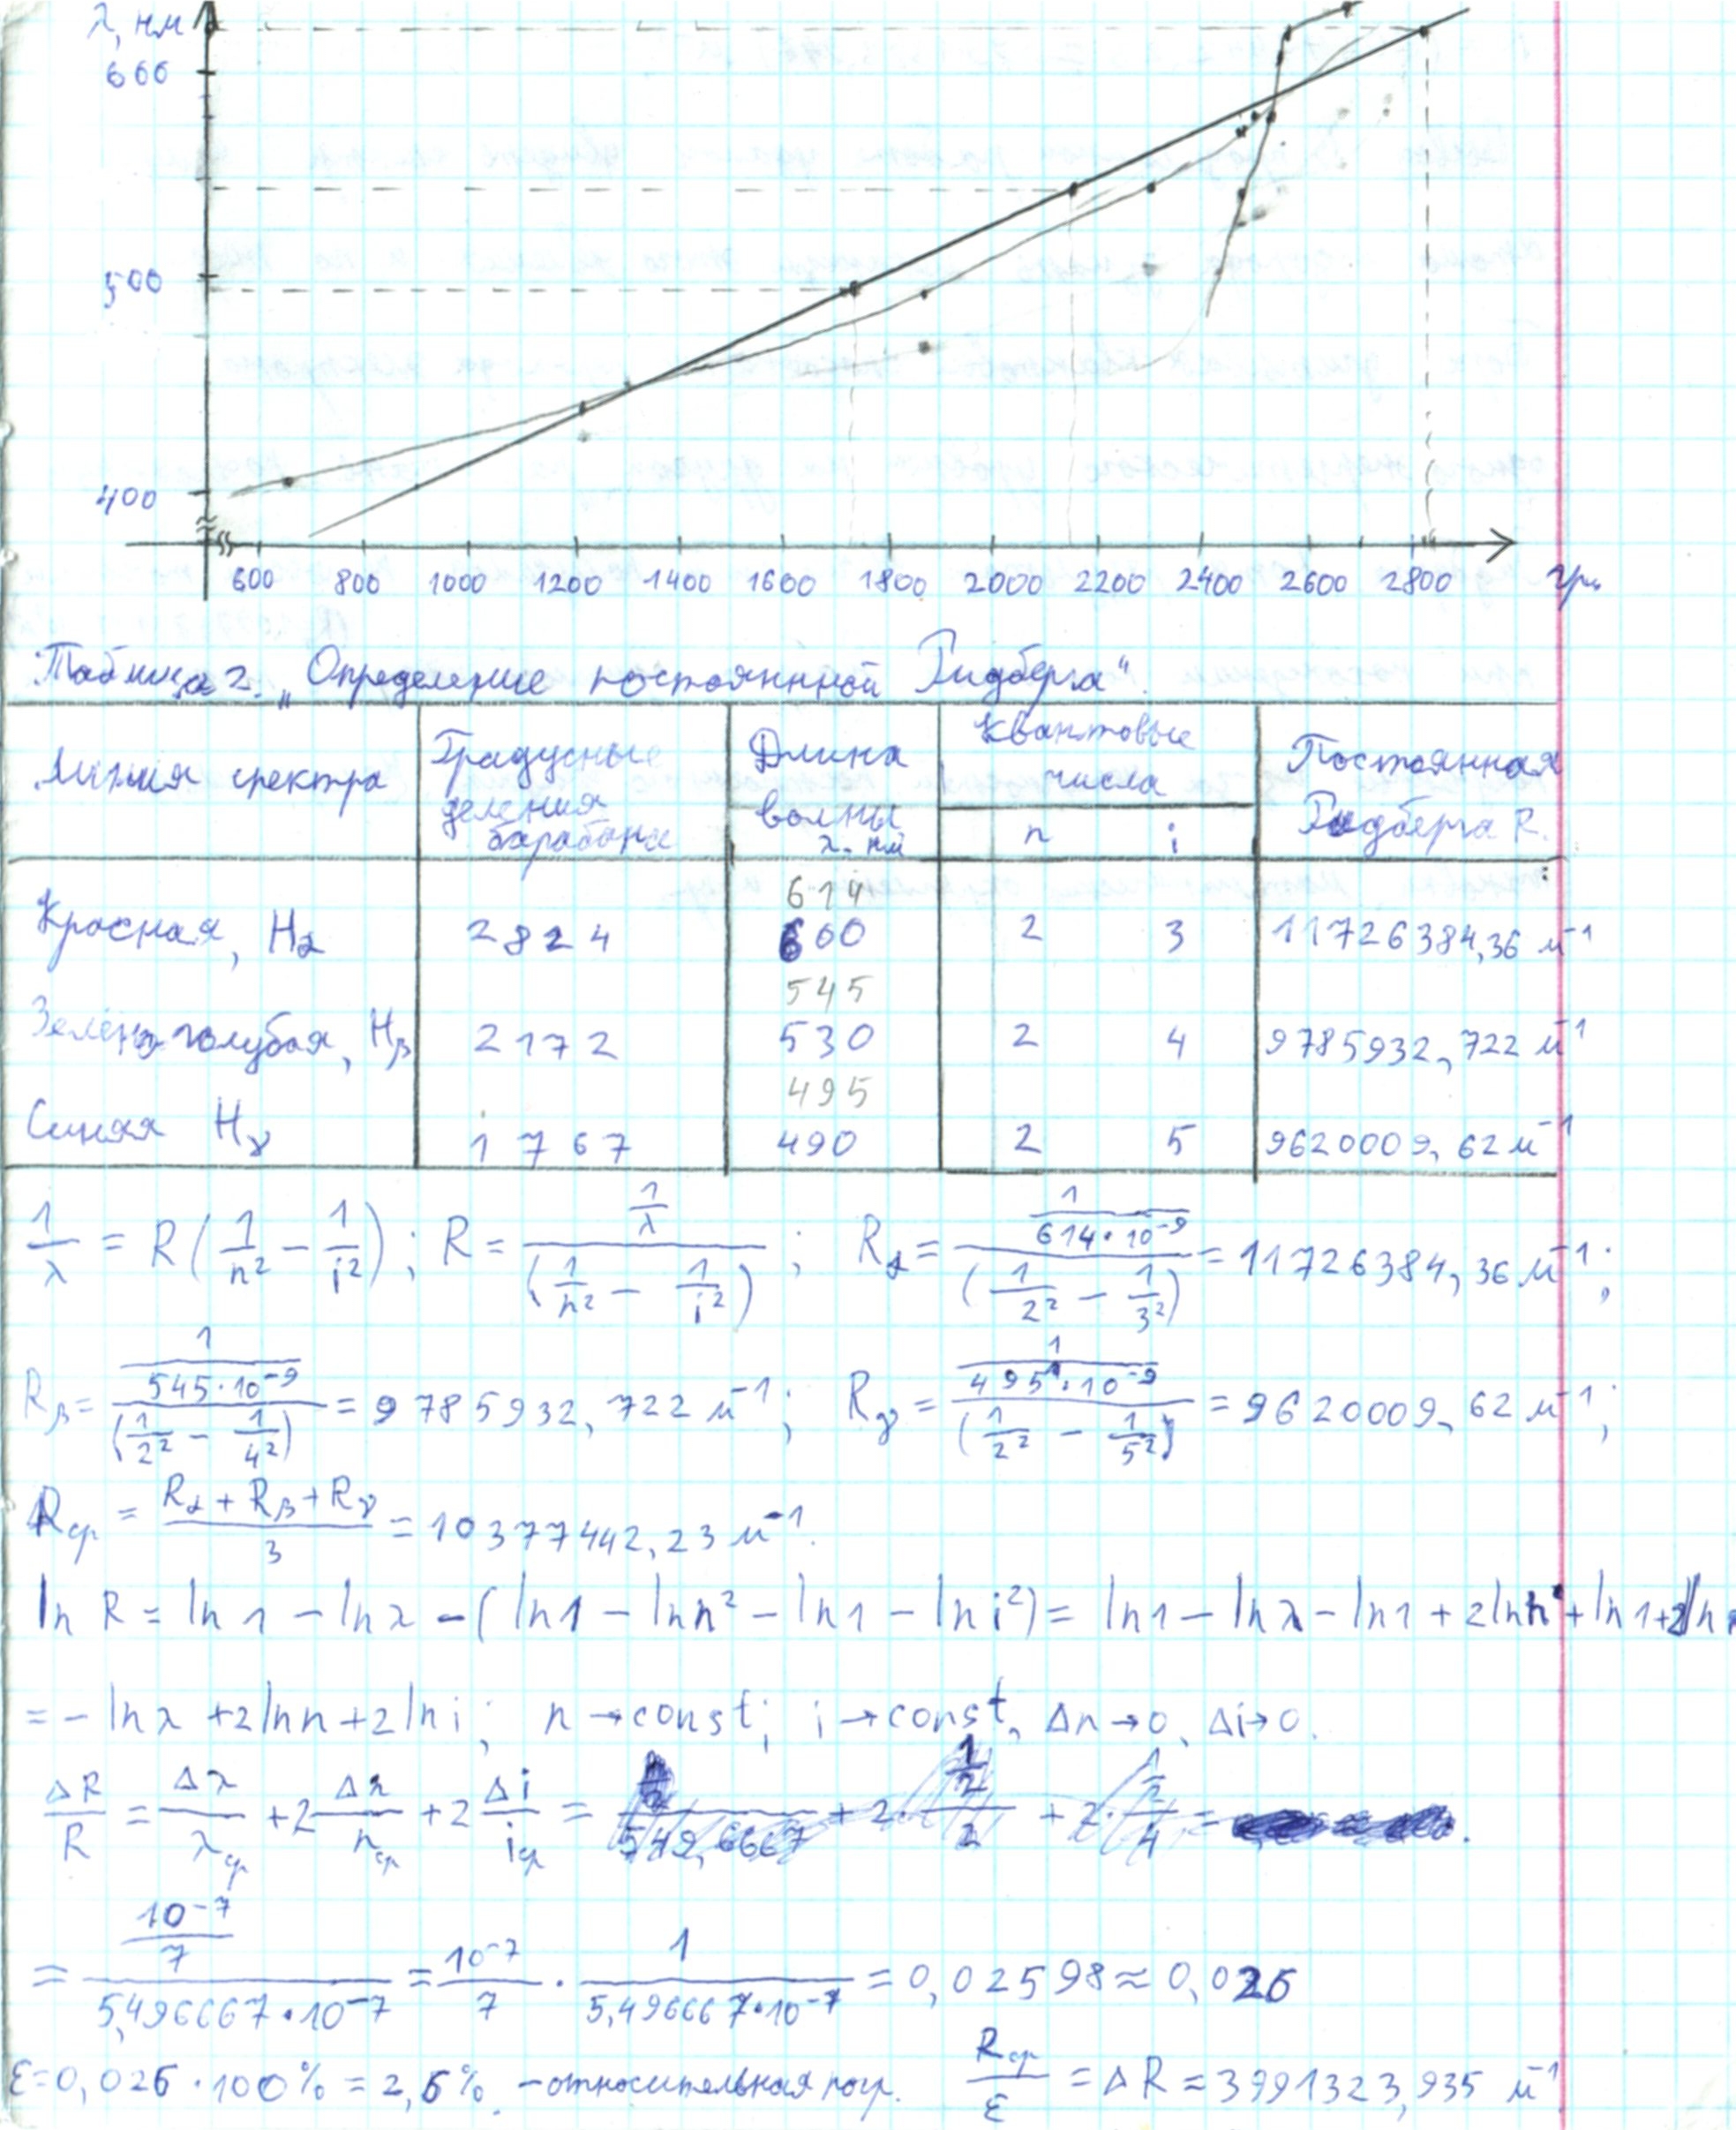 λ, нм
600
500
400
600 800 1000 1200 1400 1600 1800 2000 2200 2400 2600 2800 гр.
Таблица 2. „Определение постоянной Ридберга".
Линия спектра
Градусные
деления
барабана
Длина
волны
λ, нм
Квантовые
числа
n i
Постоянная
Ридберга R.
614
Красная, Hα 2824 600 2 3 11726384,36 м⁻¹
545
Зелено-голубая, Hβ 2172 530 2 4 9785932,722 м⁻¹
495
Синяя Hγ 1767 490 2 5 9620009,62 м⁻¹
1/λ = R(1/n² − 1/i²); R = (1/λ)/(1/n² − 1/i²); Rα = (1/(614·10⁻⁹))/(1/2² − 1/3²) = 11726384,36 м⁻¹;
Rβ = (1/(545·10⁻⁹))/(1/2² − 1/4²) = 9785932,722 м⁻¹; Rγ = (1/(495·10⁻⁹))/(1/2² − 1/5²) = 9620009,62 м⁻¹;
Rср = (Rα + Rβ + Rγ)/3 = 10377442,23 м⁻¹.
ln R = ln 1 − ln λ − (ln 1 − ln n² − ln 1 − ln i²) = ln 1 − ln λ − ln 1 + 2 ln n + ln 1 + 2 ln
= − ln λ + 2 ln n + 2 ln i; n → const; i → const, Δn → 0, Δi → 0.
ΔR/R = Δλ/λср + 2 Δn/nср + 2 Δi/iср =
= (10⁻⁷/7)/(5,496667·10⁻⁷) = 10⁻⁷/7 · 1/(5,496667·10⁻⁷) = 0,02598 ≈ 0,026
ε = 0,026·100% = 2,6% – относительная погр. Rср/ε = ΔR = 3991323,935 м⁻¹